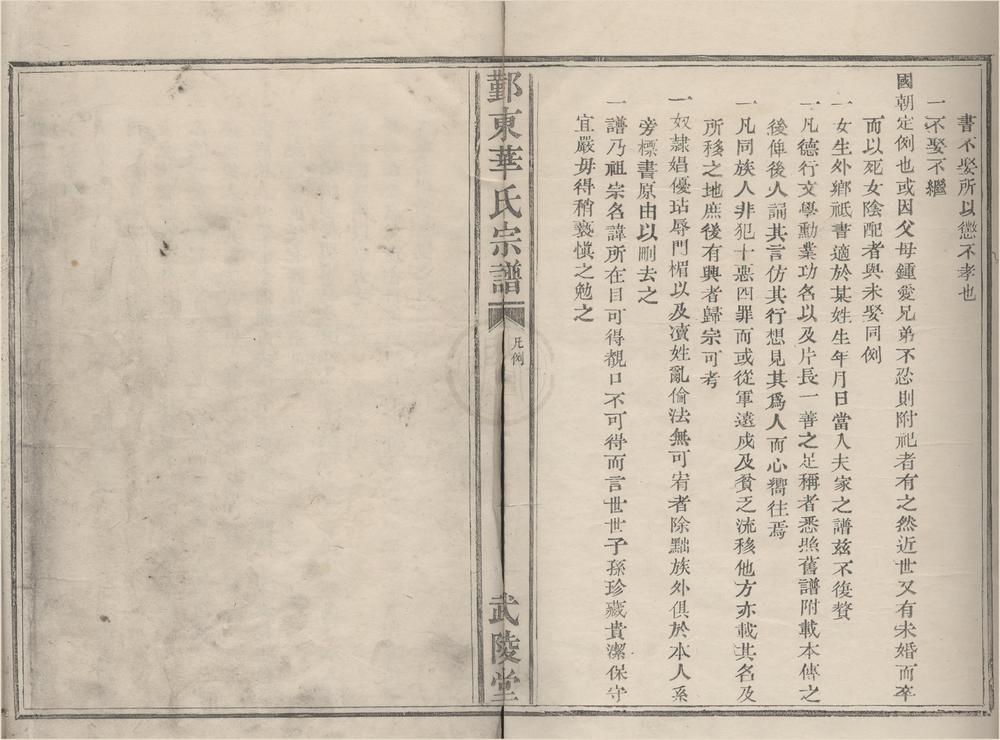 書不娶所以懲不孝也
一不娶不繼
國朝定例也或因父母鍾愛兄弟不忍則附祀者有之然近世又有未婚而卒
而以死女陰配者與未娶同例
一女生外鄉祇書適於某姓生年月日當入夫家之譜茲不復贅
一凡德行文學勳業功名以及片長一善之足稱者悉照舊譜附載本傳之
後俾後人誦其言仿其行想見其爲人而心嚮往焉
一凡同族人非犯十惡四罪而或從軍遠戍及貧乏流移他方亦載其名及
所移之地庶後有興者歸宗可考
一奴隸娼優玷辱門楣以及瀆姓亂倫法無可宥者除黜族外俱於本人系
旁標書原由以刪去之
一譜乃祖宗名諱所在目可得覩口不可得而言世世子孫珍藏貴潔保守
宜嚴毋得稍褻愼之勉之
鄞東華氏宗譜
凡例
武陵堂